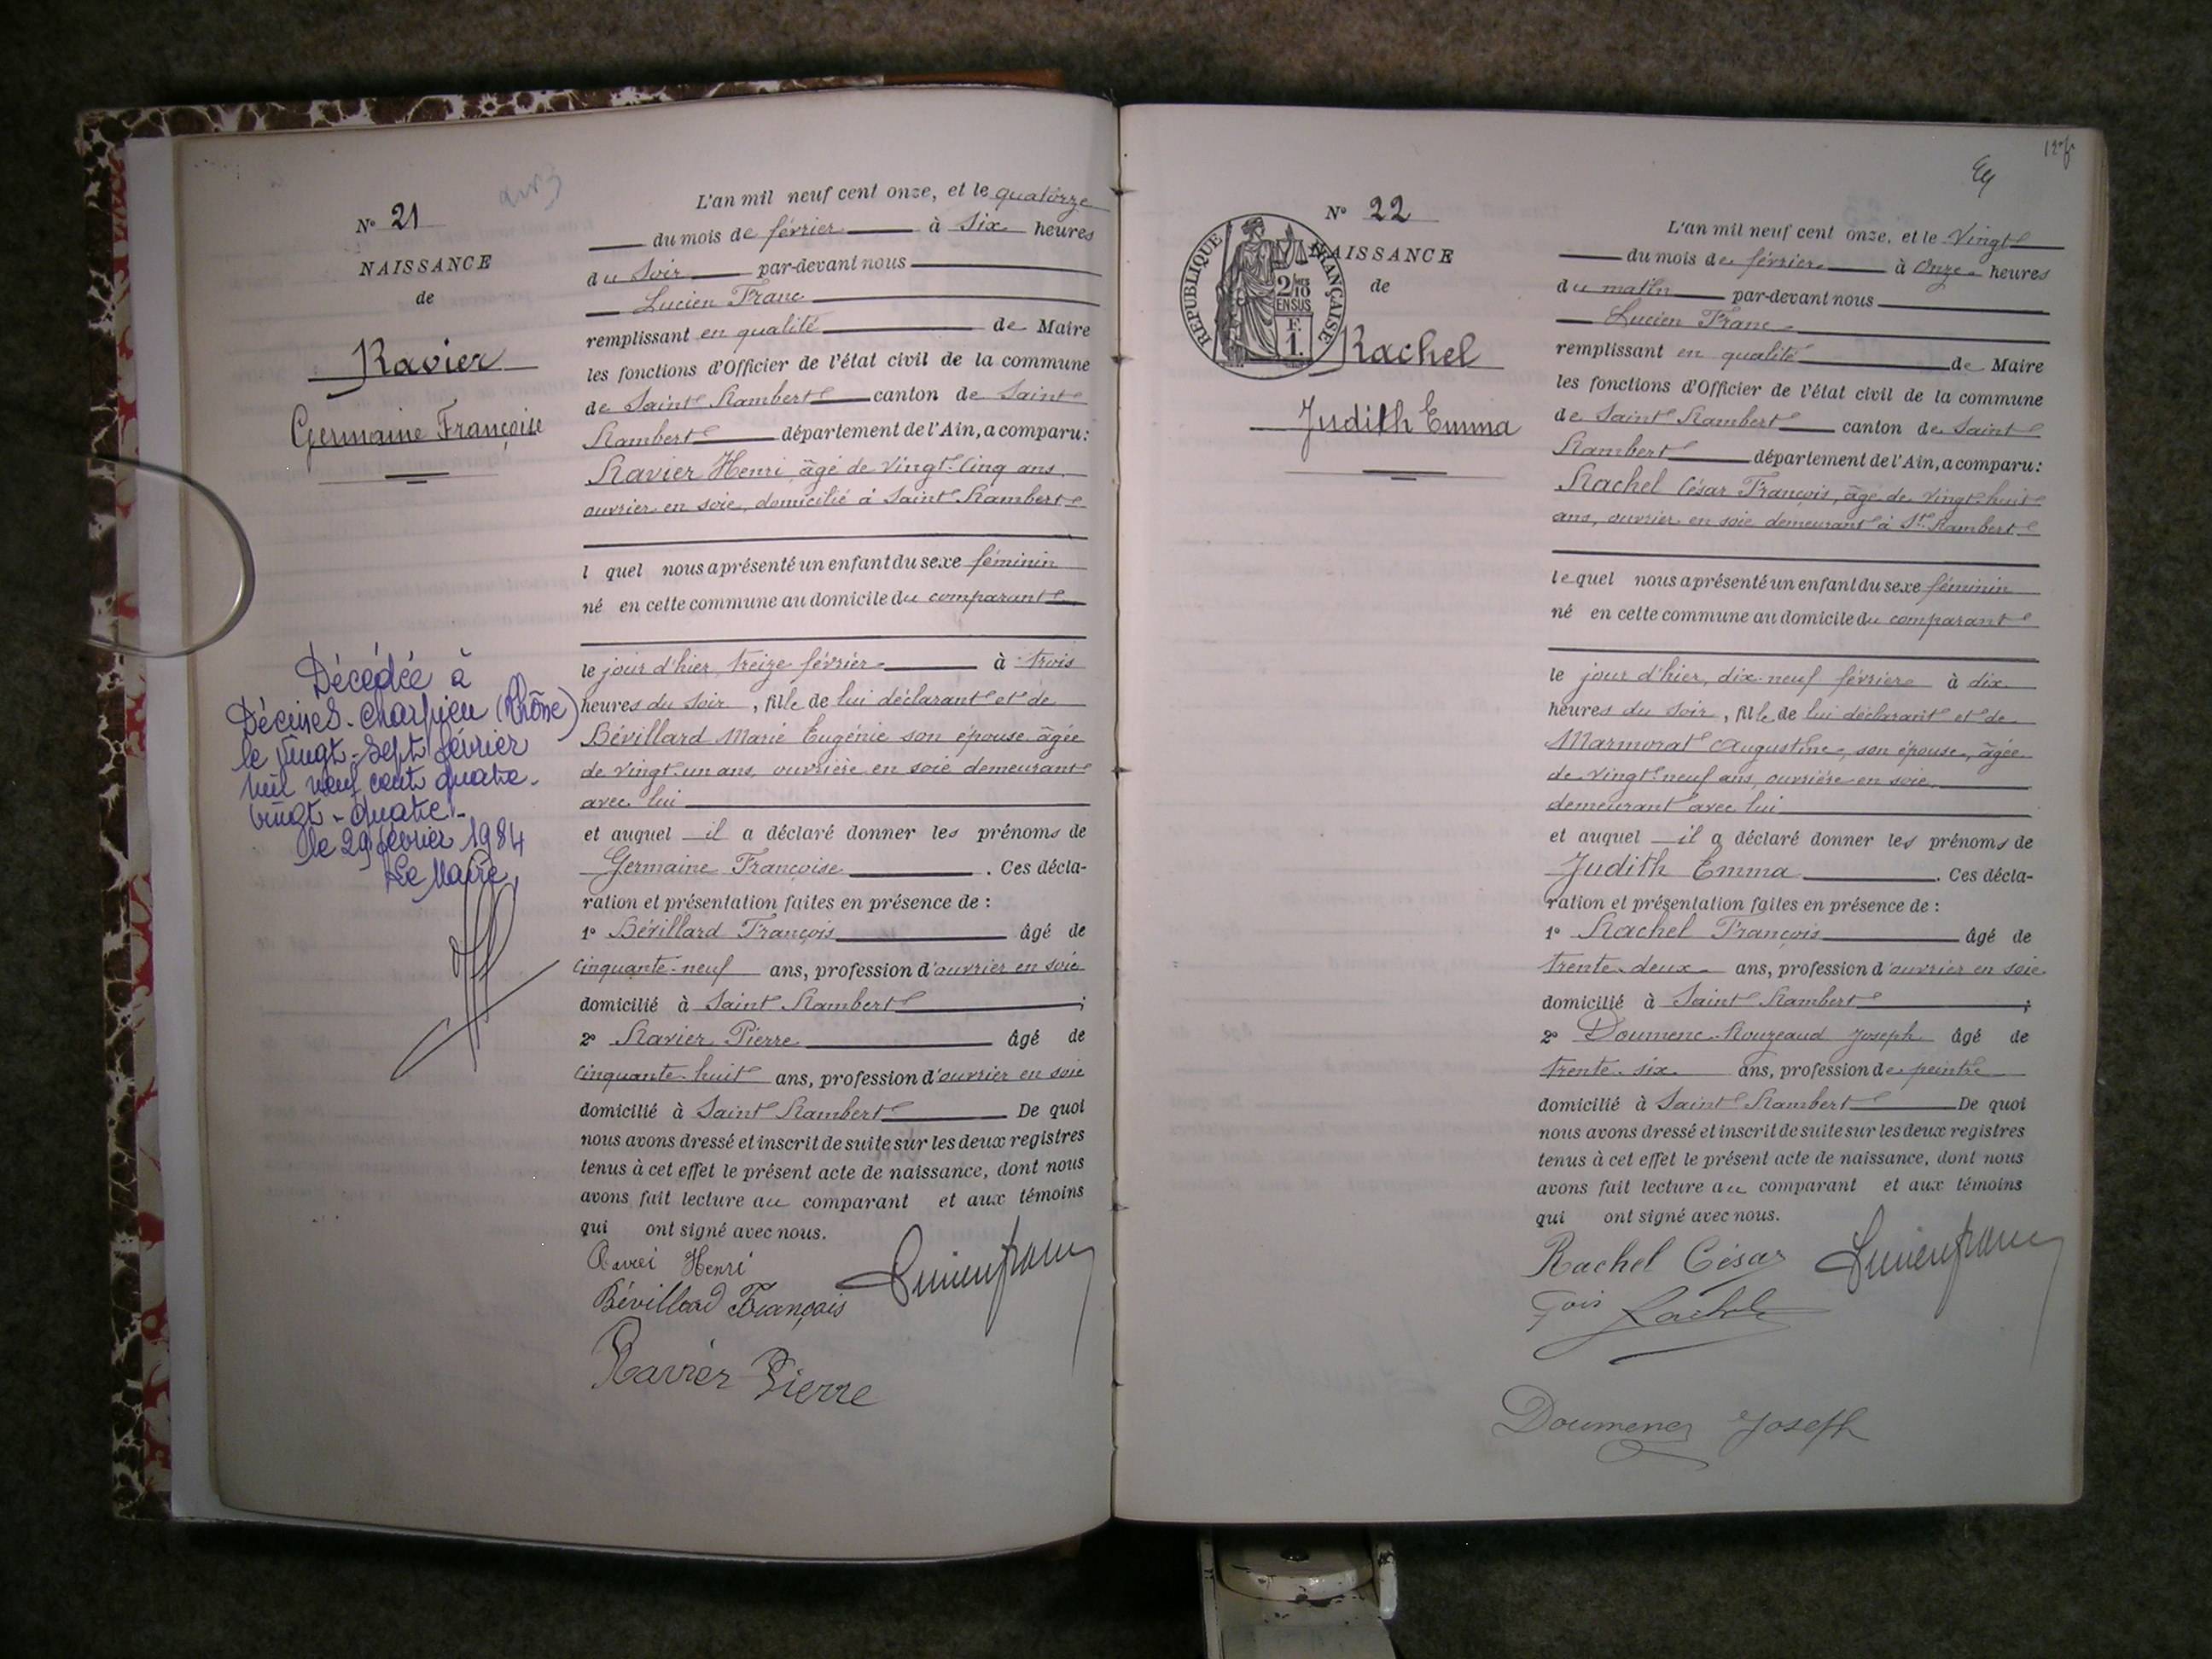 N° 21
NAISSANCE
de
Ravier
Germaine Françoise
Décédée à
Décines-Charpieu (Rhône)
le vingt-sept février
mil neuf cent quatre-
vingt-quatre.
le 29 février 1984
Le Maire,
L'an mil neuf cent onze, et le quatorze
du mois de février à six heures
du soir par-devant nous
Lucien Franc
remplissant en qualité de Maire
les fonctions d'Officier de l'état civil de la commune
de Saint Rambert canton de Saint
Rambert département de l'Ain, a comparu:
Ravier Henri, âgé de vingt-cinq ans
ouvrier en soie, domicilié à Saint Rambert
l quel nous a présenté un enfant du sexe féminin
né en cette commune au domicile du comparant
le jour d'hier, treize février à trois
heures du soir, fille de lui déclarant et de
Bévillard Marie Eugénie son épouse âgée
de vingt-un ans, ouvrière en soie demeurant
avec lui
et auquel il a déclaré donner les prénoms de
Germaine Françoise. Ces décla-
ration et présentation faites en présence de :
1° Bévillard François âgé de
cinquante-neuf ans, profession d'ouvrier en soie
domicilié à Saint Rambert ;
2° Ravier Pierre âgé de
cinquante-huit ans, profession d'ouvrier en soie
domicilié à Saint Rambert De quoi
nous avons dressé et inscrit de suite sur les deux registres
tenus à cet effet le présent acte de naissance, dont nous
avons fait lecture au comparant et aux témoins
qui ont signé avec nous.
Henri
Lucien franc
Bévillard François
Ravier Pierre
N° 22
NAISSANCE
de
RÉPUBLIQUE FRANÇAISE
2/10
EN SUS
F.
1.
Rachel
Judith Emma
L'an mil neuf cent onze, et le vingt
du mois de février à onze heures
du matin par-devant nous
Lucien Franc
remplissant en qualité de Maire
les fonctions d'Officier de l'état civil de la commune
de Saint Rambert canton de Saint
Rambert département de l'Ain, a comparu:
Rachel César François, âgé de vingt-huit
ans, ouvrier en soie demeurant à St Rambert
lequel nous a présenté un enfant du sexe féminin
né en cette commune au domicile du comparant
le jour d'hier, dix-neuf février à dix
heures du soir, fille de lui déclarant et de
Marmorat Augustine, son épouse, âgée
de vingt-neuf ans, ouvrière en soie
demeurant avec lui
et auquel il a déclaré donner les prénoms de
Judith Emma. Ces décla-
ration et présentation faites en présence de :
1° Rachel François âgé de
trente-deux ans, profession d'ouvrier en soie
domicilié à Saint Rambert ;
2° Doumenc-Rouzeaud Joseph âgé de
trente-six ans, profession de peintre
domicilié à Saint Rambert De quoi
nous avons dressé et inscrit de suite sur les deux registres
tenus à cet effet le présent acte de naissance, dont nous
avons fait lecture au comparant et aux témoins
qui ont signé avec nous.
Rachel César Lucien franc
Rachel
Doumenc Joseph